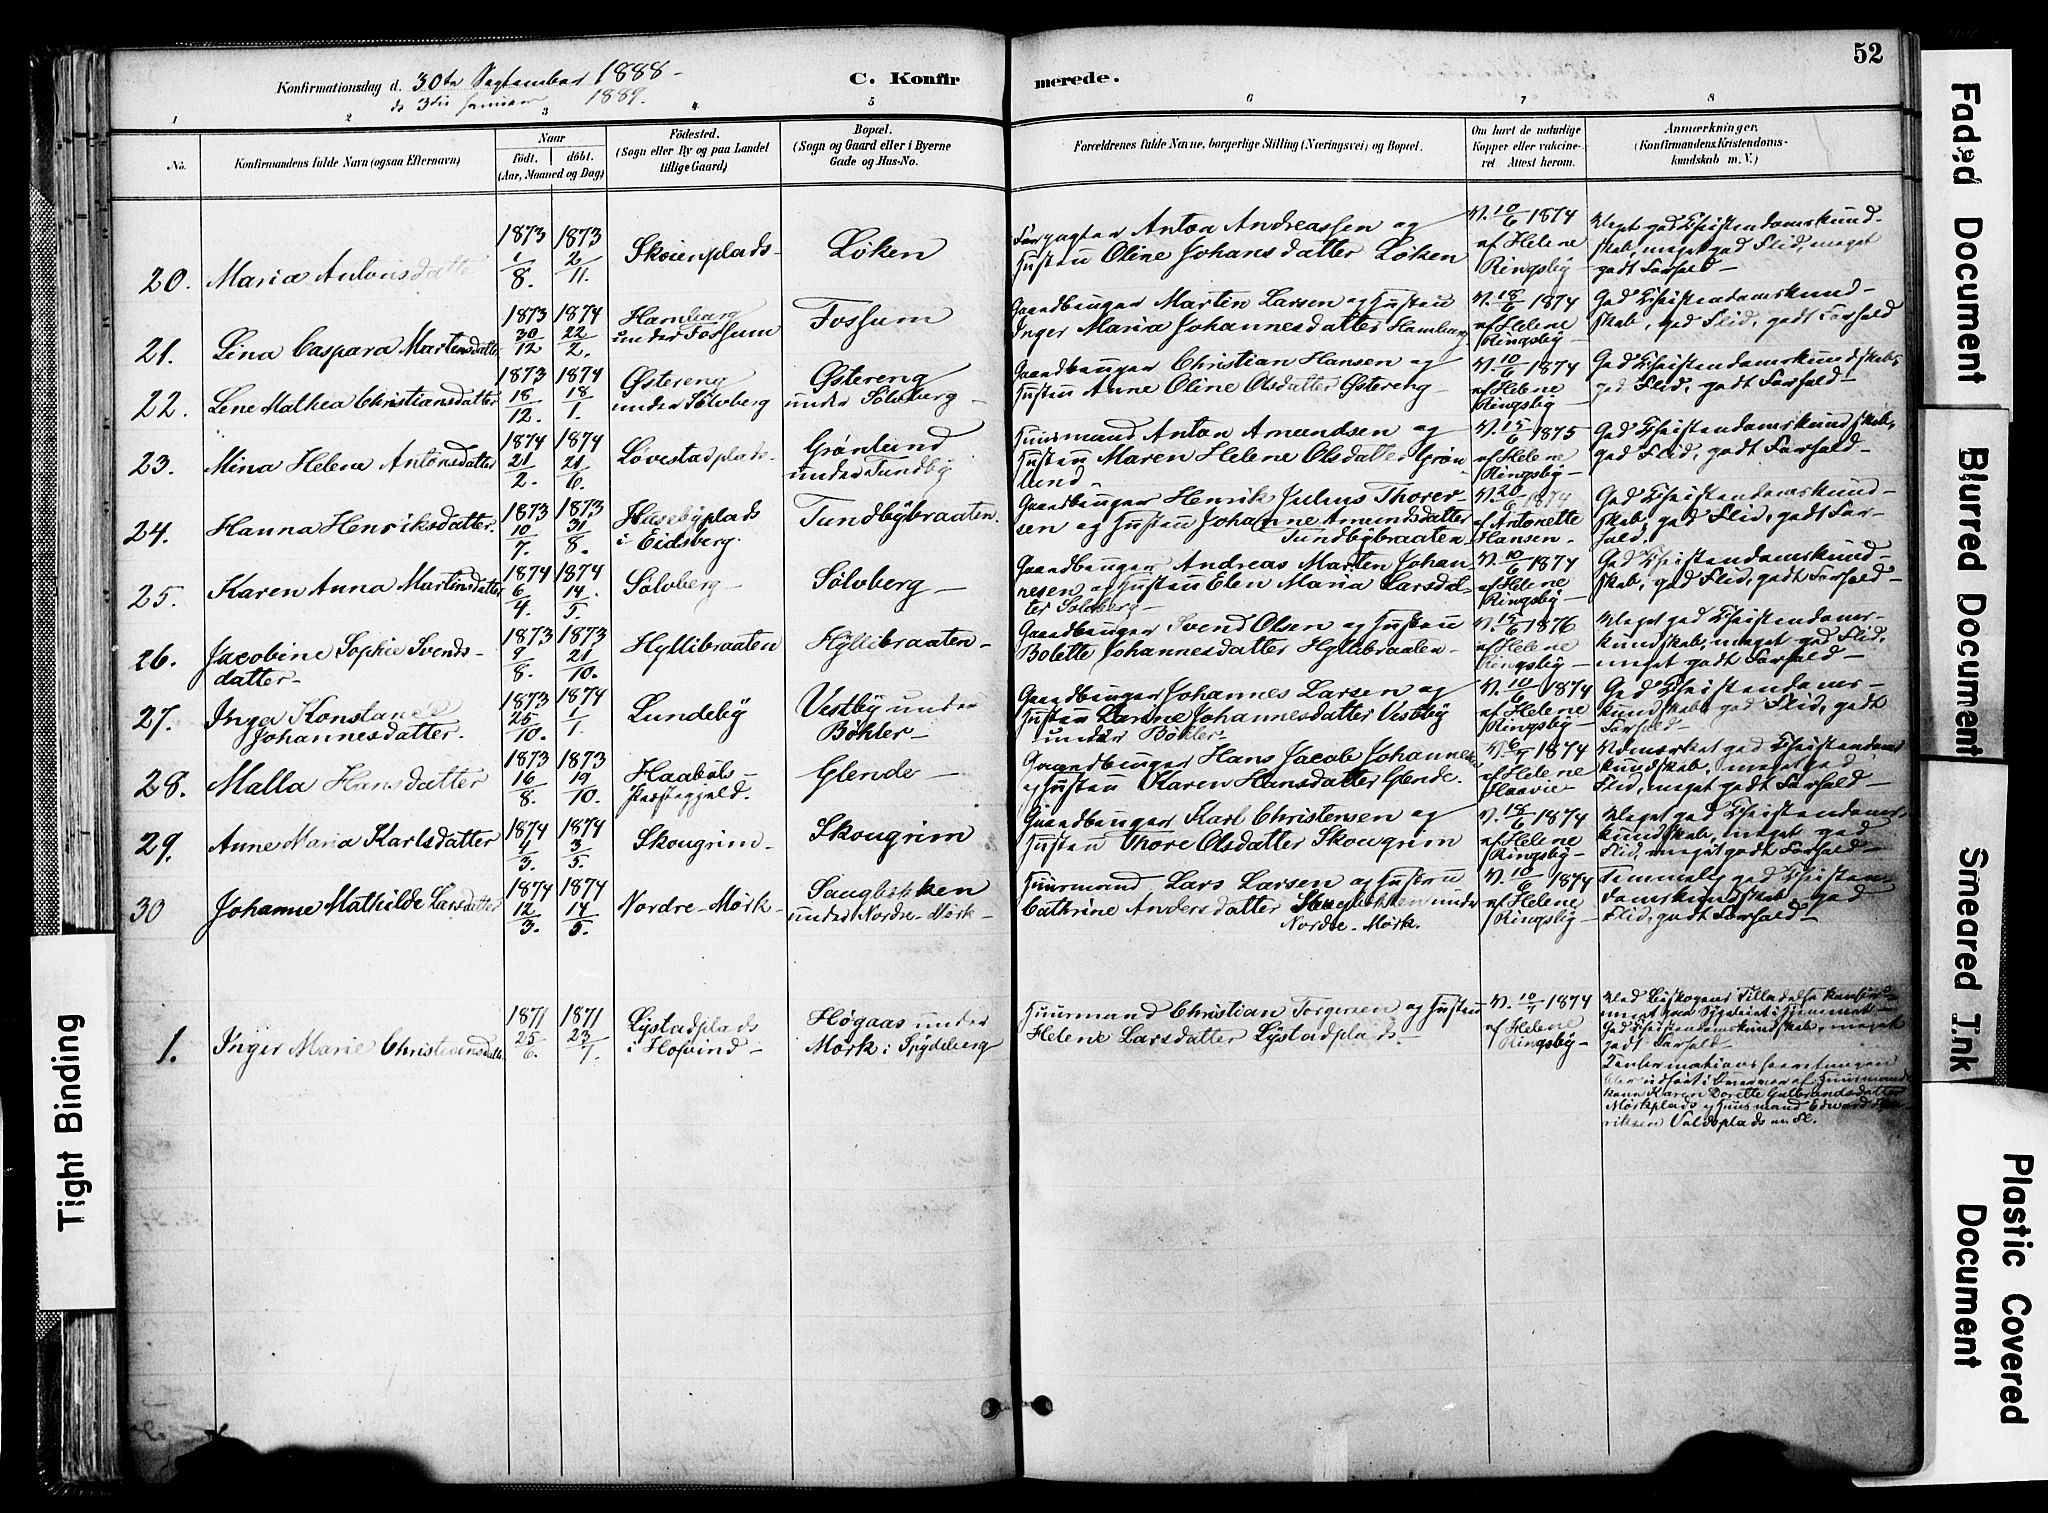 52
Konfirmationsdag d. 30te September 1888-
C. Konfirmerede.
do 3die Januar 1889.
1 2 3 4 5 6 7 8
No.
Konfirmandens fulde Navn (ogsaa Efternavn)
Naar
födt. döbt.
(Aar, Maaned og Dag)
Födested.
(Sogn eller By og paa Landet
tillige Gaard)
Bopæl.
(Sogn og Gaard eller i Byerne
Gade og Hus-No.
Forældrenes fulde Navne, borgerlige Stilling (Næringsvei) og Bopæl.
Om havt de naturlige
Kopper eller vakcine-
ret Attest herom.
Anmærkninger.
(Konfirmandens Kristendoms-
kundskab m. V.)
20. Maria Antonsdatter
1873 1/8. 1873 2/11.
Skoienplads-
Løken
Forpagter Anton Andreassen og
Hustru Oline Johansdatter Løken
V. 10/6 1874
af Helene
Ringsby-
Meget god Christendomskund-
skab, meget god Flid, meget
godt Forhold-
21. Lina Caspara Martinsdatter
1873 30/12 1874 22/2.
Hamborg
under Fossum
Fossum
Gaardbruger Martin Larsen og Hustru
Inger Maria Johannesdatter Hamborg
V. 18/6 1874
af Helene
Ringsby-
God Christendomskund-
skab, god Flid, godt Forhold
22. Lene Mathea Christiansdatter
1873 18/12. 1874 18/1.
Østereng
under Sölvberg
Østereng
under Sölvberg-
Gaardbruger Christian Hansen og
Hustru Anne Oline Olsdatter Østereng-
V. 10/6 1874
af Helene
Ringsby-
God Christendomskundskab,
god Flid, godt Forhold-
23. Mina Helene Antonsdatter
1874 21/2. 1874 21/6.
Lövestadplads-
Grønlund
under Tundby
Huusmand Anton Amundsen og
Hustru Maren Helene Olsdatter Grøn-
lund-
V. 15/6 1875
af Helene
Ringsby-
God Christendomskundskab,
god Flid, godt Forhold-
24. Hanna Henriksdatter.
1873 10/7. 1873 31/8.
Husebyplads
i Eidsberg.
Tundbybraaten.
Gaardbruger Henrik Julius Thorer-
sen og Hustru Johanne Amundsdatter
Tundbybraaten
V. 20/6 1874
af Antonette
Hansen-
God Christendomskund-
skab, god Flid, godt For-
hold.
25. Karen Anna Martinsdatter
1874 6/4. 1874 14/5.
Sölvberg-
Sölvberg-
Gaardbruger Andreas Martin Johan-
nesen og Hustru Elen Maria Larsdat-
ter Sölvberg-
V. 10/6 1874
af Helene
Ringsby-
God Christendomskund-
skab, god Flid, godt Forhold-
26. Jacobine Sophie Svends-
datter-
1873 9/8. 1873 21/10.
Hyllibraaten
Hyllibraaten-
Gaardbruger Svend Olsen og Hustru
Bolette Johannesdatter Hyllibraaten-
V. 15/6 1876
af Helene
Ringsby-
Meget god Christendoms-
kundskab, meget god Flid,
meget godt Forhold-
27. Inga Konstance
Johannesdatter.
1873 25/10. 1874 1/1.
Lundeby
Vestby under
Böhler-
Gaardbruger Johannes Larsen og
Hustru Johannesdatter Vestby
under Böhler-
V. 10/6 1874
af Helene
Ringsby-
God Christendoms-
kundskab, god Flid, godt
Forhold-
28. Malla Hansdatter
1873 16/8. 1873 19/10.
Haaböls-
Præstegjeld.
Glende-
Gaardbruger Hans Jacob Johannesen
og Hustru Karen Hansdatter Glende.
1874
af Helene
Haavie-
Udmærket god Christendoms-
kundskab, meget god
Flid, meget godt Forhold-
29. Anne Maria Karlsdatter
1874 4/3. 1874 3/5.
Skougrim-
Skougrim
Gaardbruger Karl Christensen og
Hustru Thore Olsdatter Skougrim
V. 18/6 1874
af Helene
Ringsby-
Meget god Christendoms-
kundskab, meget god
Flid, meget godt Forhold-
30 Johanne Mathilde Larsdatter
1874 12/3. 1874 14/5.
Nordre-Mörk-
Saugbakken
under Nordre-Mörk-
Huusmand Lars Larsen og Hustru
Cathrine Andersdatter Saugbakken under
Nordre-Mörk.
V. 10/6 1874
af Helene
Ringsby-
Temmelig god Christen-
domskundskab, god
Flid, godt Forhold-
1. Inger Marie Christiansdatter
1871 25/6. 1871 23/7.
Lystadplads
i Hofvind-
Högaas under
Mörk i Spydeberg
Huusmand Christian Torgersen og Hustru
Helene Larsdatter Lystadplads-
1874
af Helene
Ringsby-
Med Biskopens Tilladelse konfir-
meret paa Sygeleiet i Hjemmet-
God Christendomskundskab, meget
godt Forhold.
Konfirmationsforretningen
blev udfört i Overvær af Huusmands-
kone Karen Dorette Gulbrandsdatter
Mörkplads og Huusmand Edvard Hen-
riksen Voldsplads m. Fl.
Tight Binding
Faded Document
Blurred Document
Smeared Ink
Plastic Covered
Document